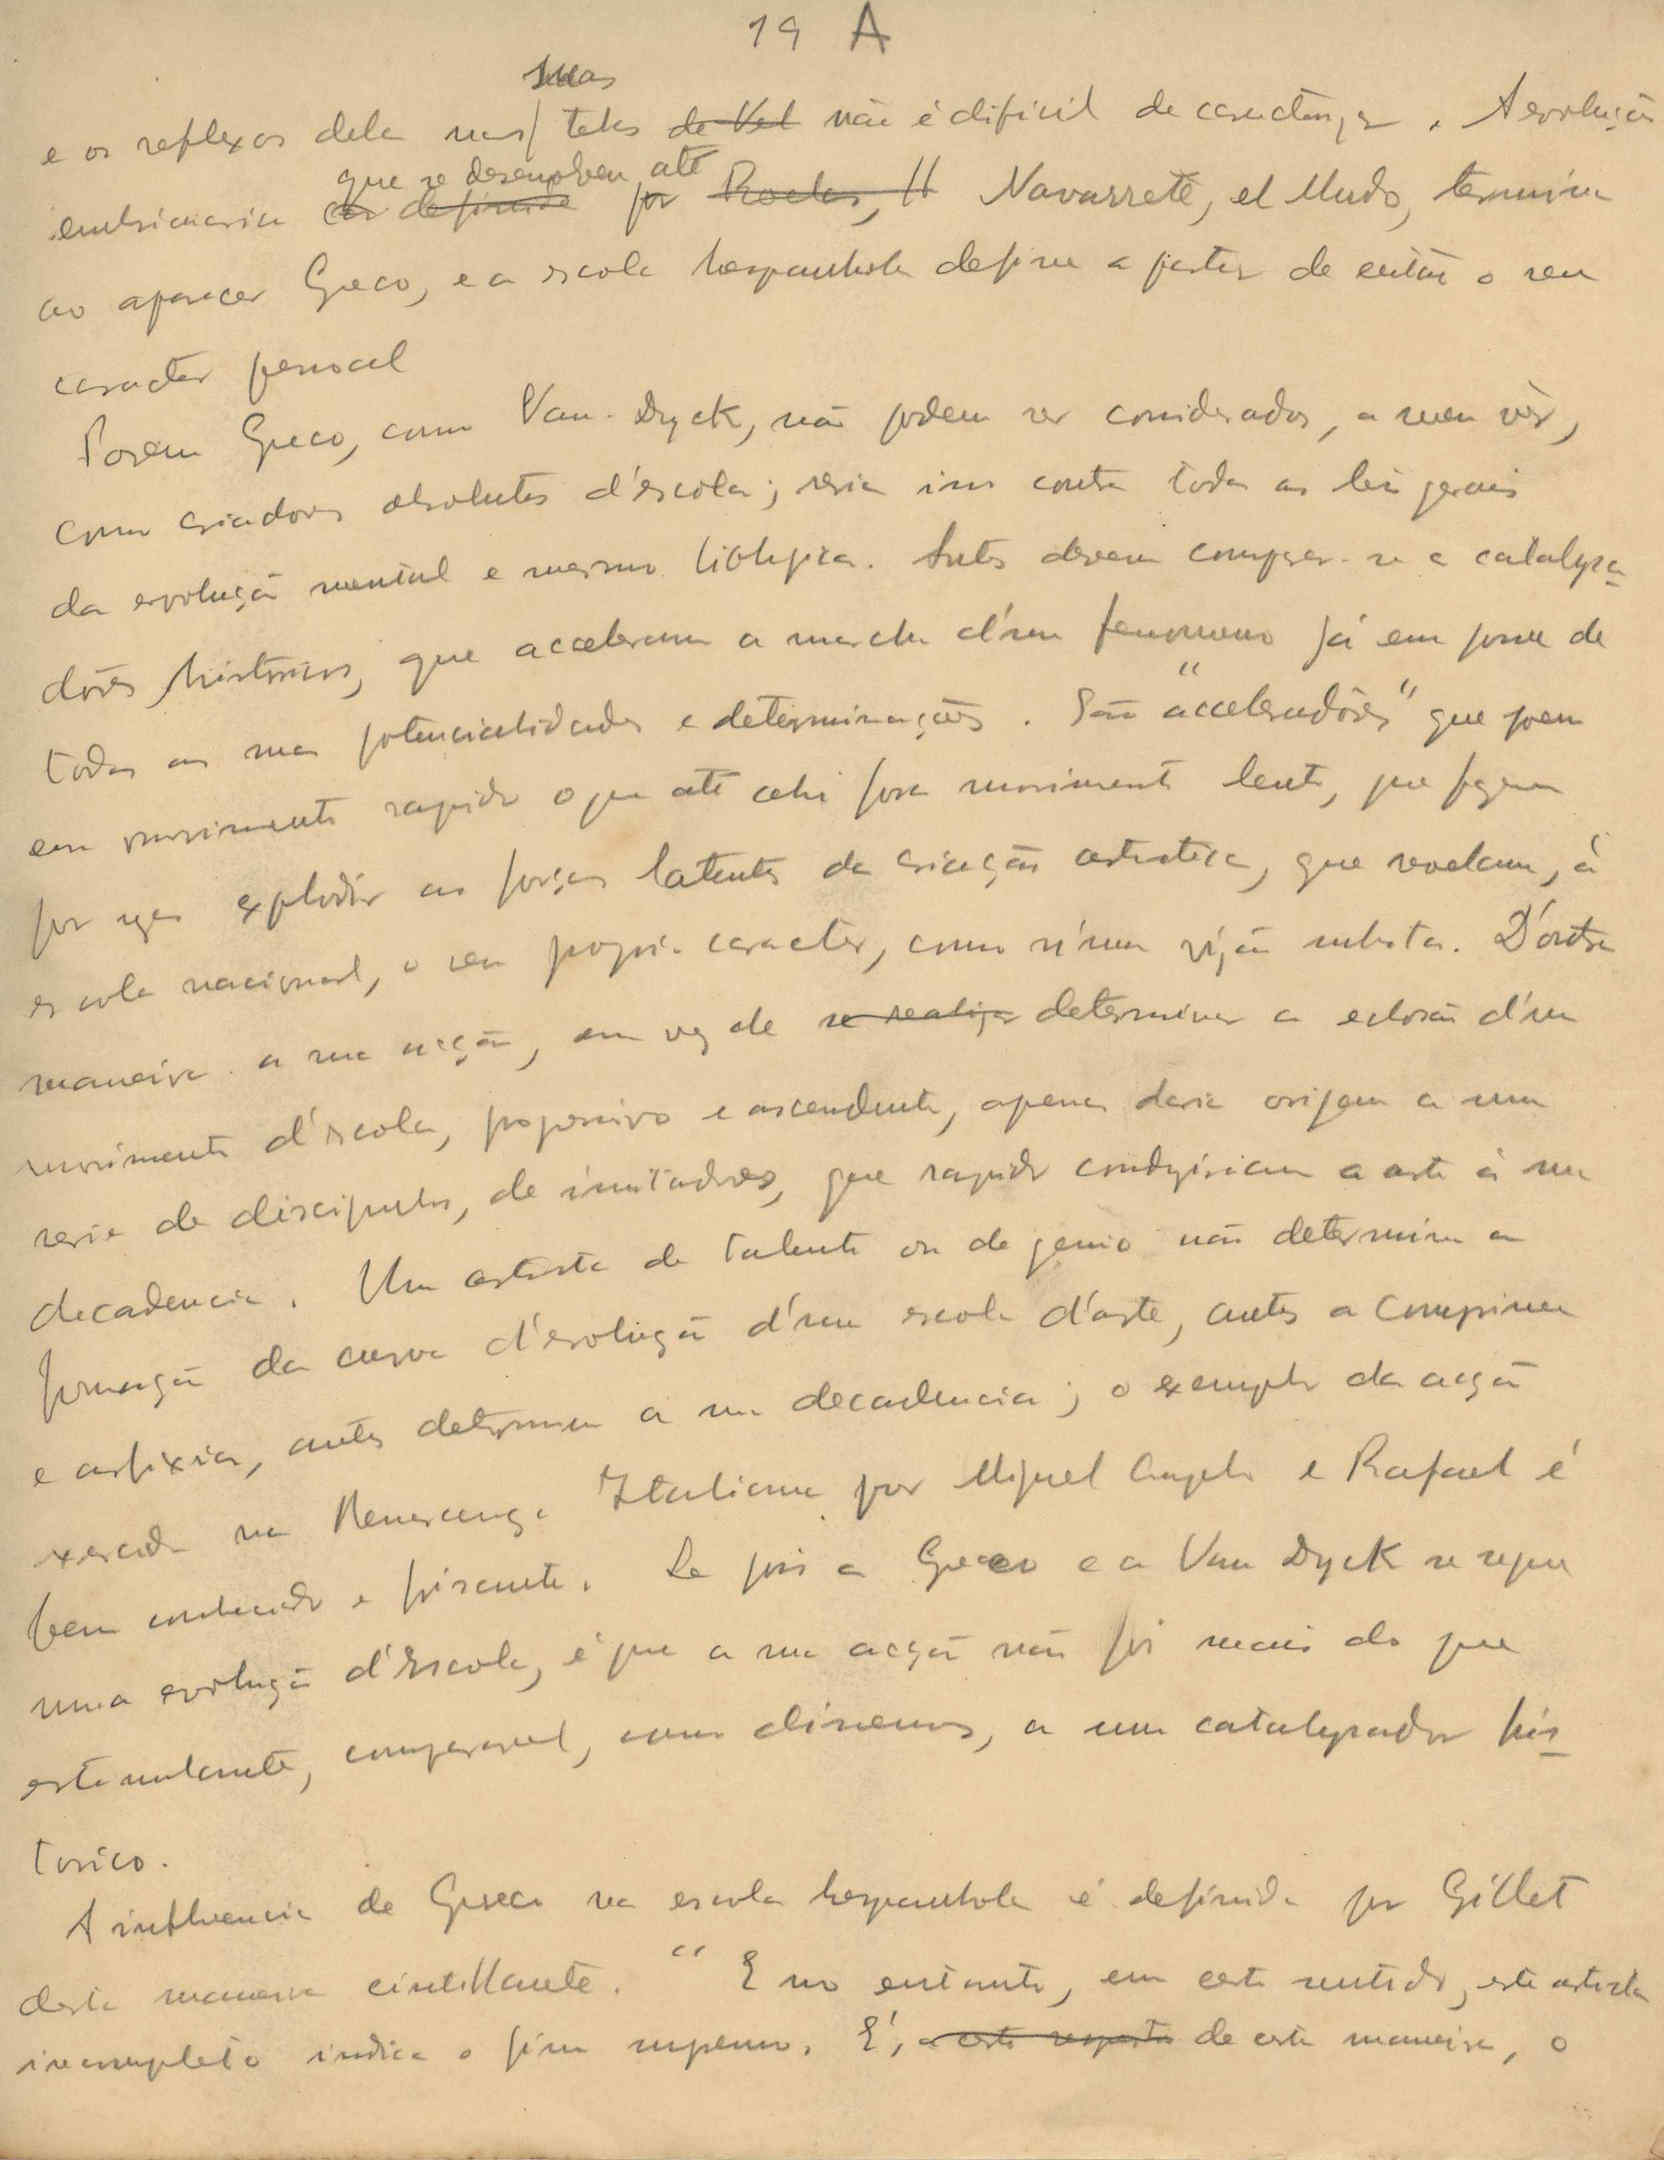 19 A
suas
e os reflexos dela nas telas de Vel não é dificil de . A evolução
que se desenvolveu até
embrionaria definida por Roelas, Navarrete, el Mudo, termina
ao aparecer Greco, e a escola hespanhola define a partir de então o seu
caracter pessoal
Porem Greco, como Van-Dyck, não podem ser considerados, a meu vêr,
como criadores absolutos d'escola; seria isso contra todas as leis gerais
da evolução mental e mesmo biologica. Antes devem comparar-se a catalysa-
dôres historicos, que acceleram a marcha d'um fenomeno já em posse de
todas as suas potencialidades e determinações. São "acceleradôres" que poem
em movimento rapido o que até ahi fora movimento lento, que fazem
por vezes explodir as forças latentes da criação artistica, que revelam, á
escola nacional, o seu proprio caracter, como n'uma visão subita. D'outra
maneira a sua acção, em vez de se realizar determinar a eclosão d'um
movimento d'escola, progressivo e ascendente, apenas daria origem a uma
serie de discipulos, de imitadores, que rapido conduziriam a arte á sua
decadencia. Um artista de talento ou de genio não determina a
formação da curva d'evolução d'uma escola d'arte, antes a comprime
e asfixia, antes determina a sua decadencia; o exemplo da acção
exercida na Renascença Italiana por Miguel Angelo e Rafael é
bem conhecido e frisante. Se pois a Greco e a Van Dyck se segue
uma evolução d'Escola, é que a sua acção não foi mais do que
estimulante, comparavel, como dissemos, a um catalysador his-
torico.
A influencia de Greco na escola hespanhola é definida por Gillet
desta maneira cintillante. "E no entanto, em certo sentido, este artista
incompleto indica o fim supremo. É, a este respeito de certa maneira, o